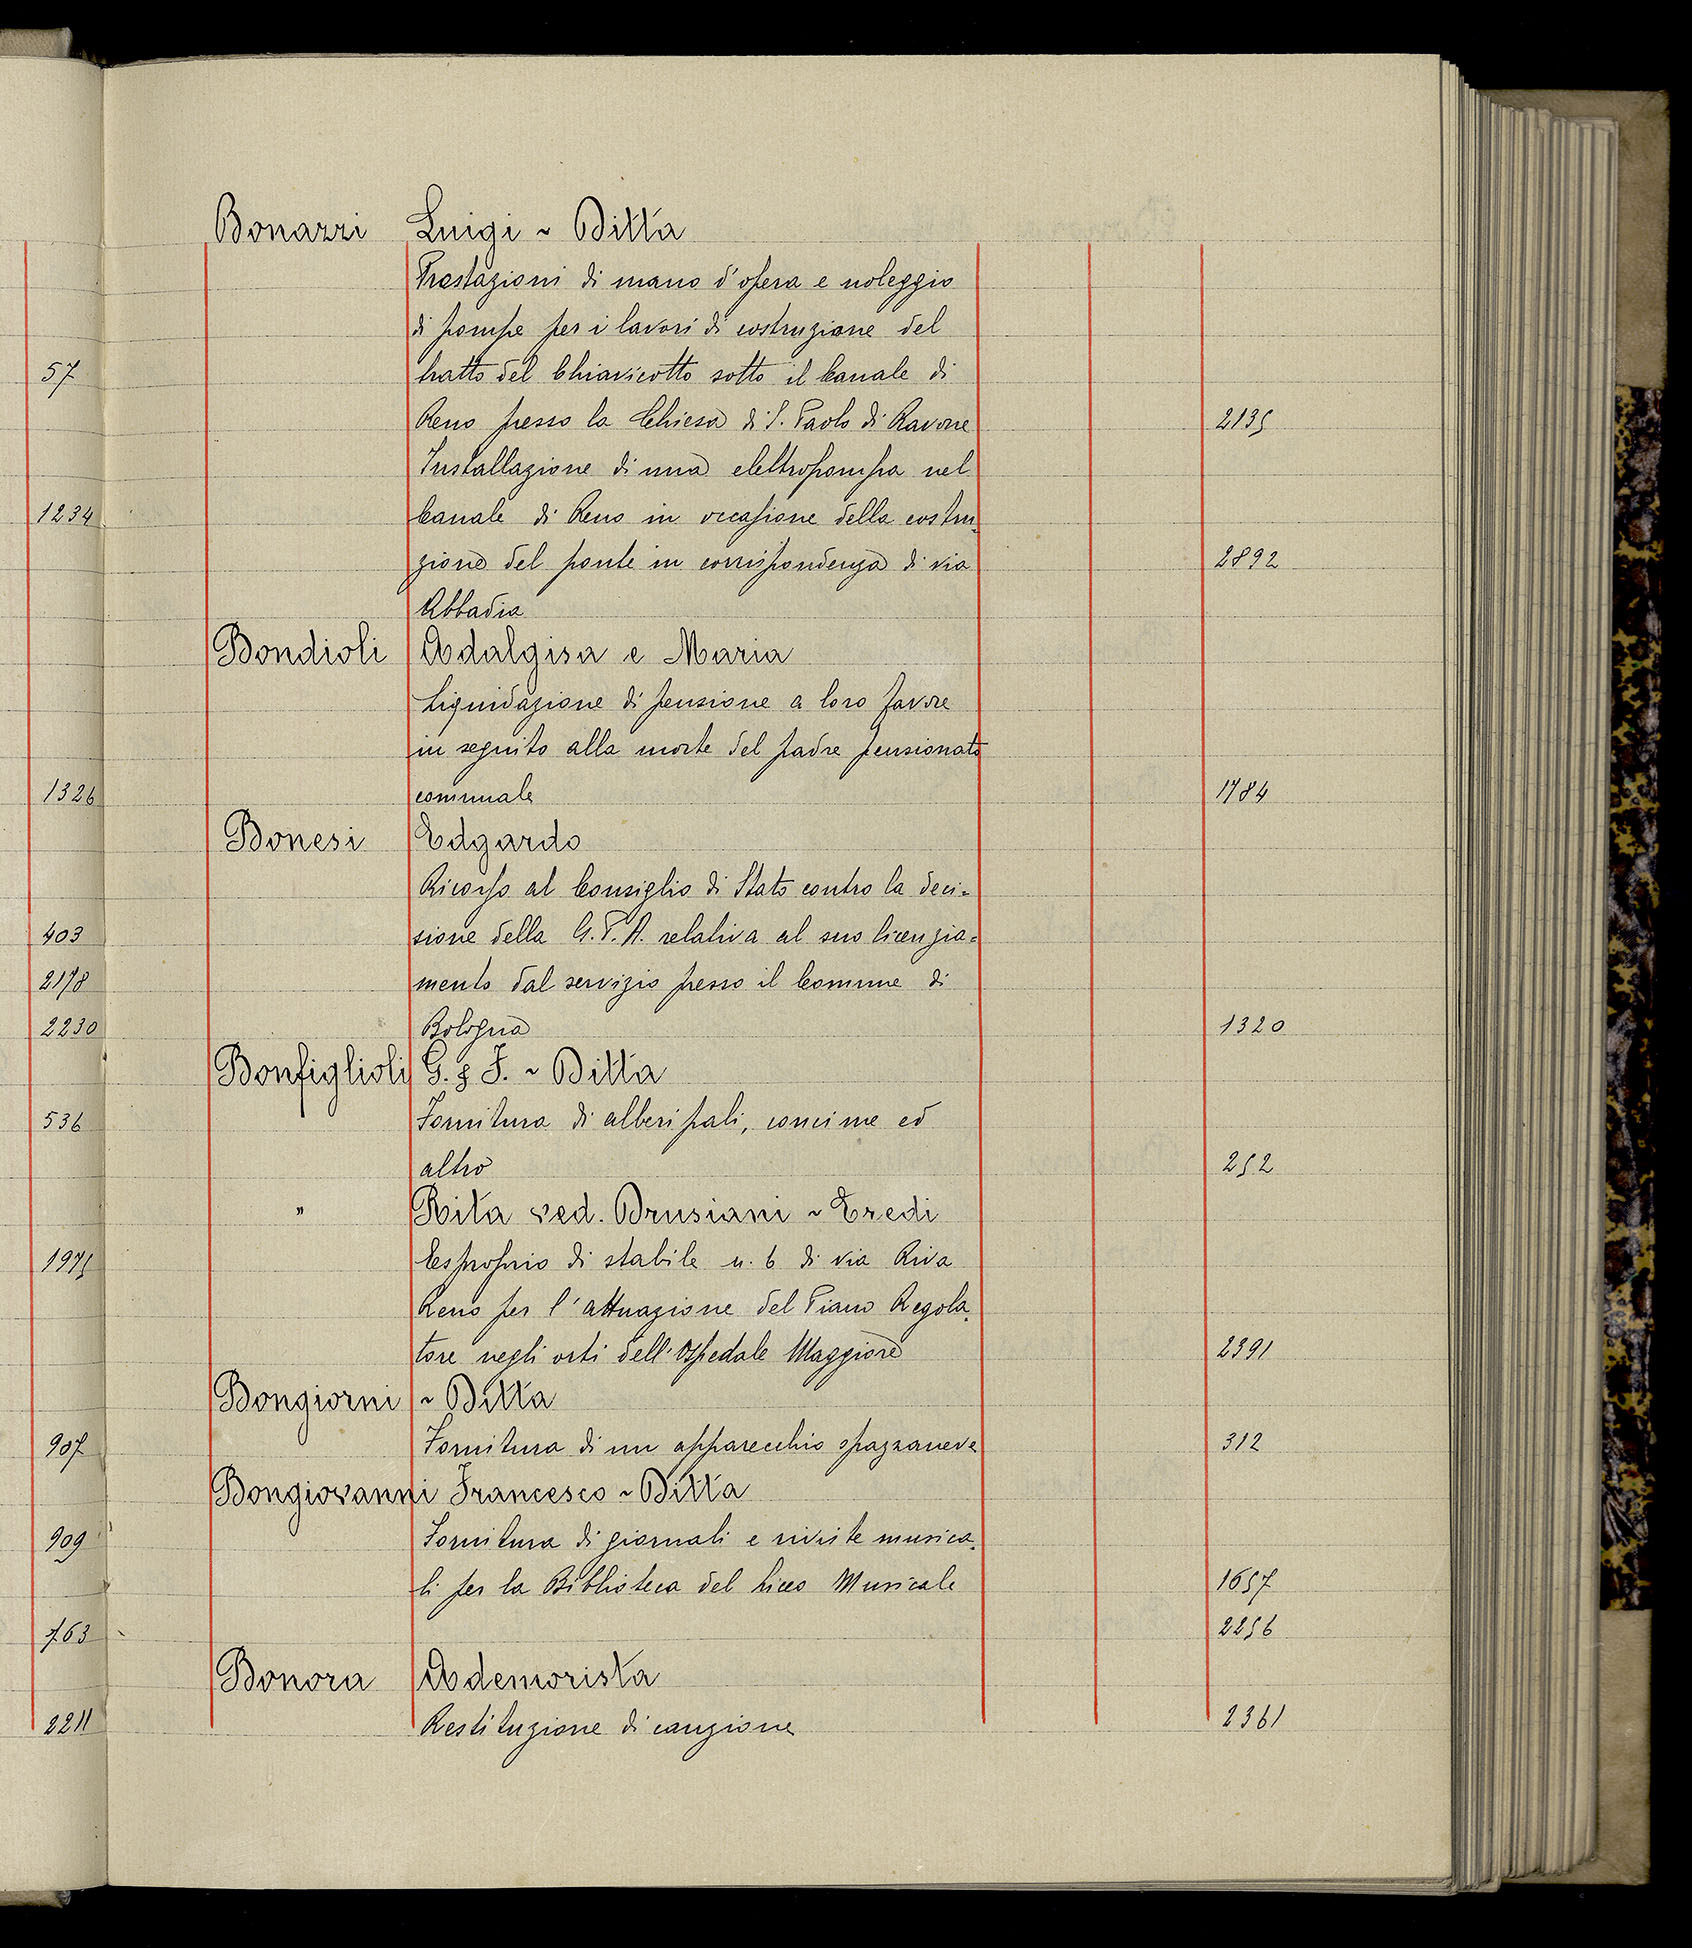 Bonazzi Luigi ~ Ditta
Prestazioni di mano d'opera e noleggio
di pompe per i lavori di costruzione del
57 tratto del Chiavicotto sotto il Canale di
Reno presso la Chiesa di S. Paolo di Ravone 2135
Installazione di una elettropompa nel
1234 Canale di Reno in occasione della costru-
zione del ponte in corrispondenza di via 2892
Abbadia
Bondioli Adalgisa e Maria
Liquidazione di pensione a loro favore
in seguito alla morte del padre pensionato
1326 comunale 1784
Bonesi Edgardo
Ricorso al Consiglio di Stato contro la deci=
403 sione della G. P. A. relativa al suo licenzia=
2178 mento dal servizio presso il Comune di
2230 Bologna 1320
Bonfiglioli G. & F. ~ Ditta
536 Fornitura di alberi pali, concime ed
altro 252
" Rita ved. Brusiani ~ Eredi
1975 Esproprio di stabile n. 6 di via Riva
Reno per l'attuazione del Piano Regola-
tore negli orti dell'Ospedale Maggiore 2391
Bongiorni ~ Ditta
907 Fornitura di un apparecchio spazzaneve 312
Bongiovanni Francesco ~ Ditta
909 Fornitura di giornali e riviste musica-
li per la Biblioteca del Liceo Musicale 1657
763 2256
Bonora Ademorista
2211 Restituzione di cauzione 2361